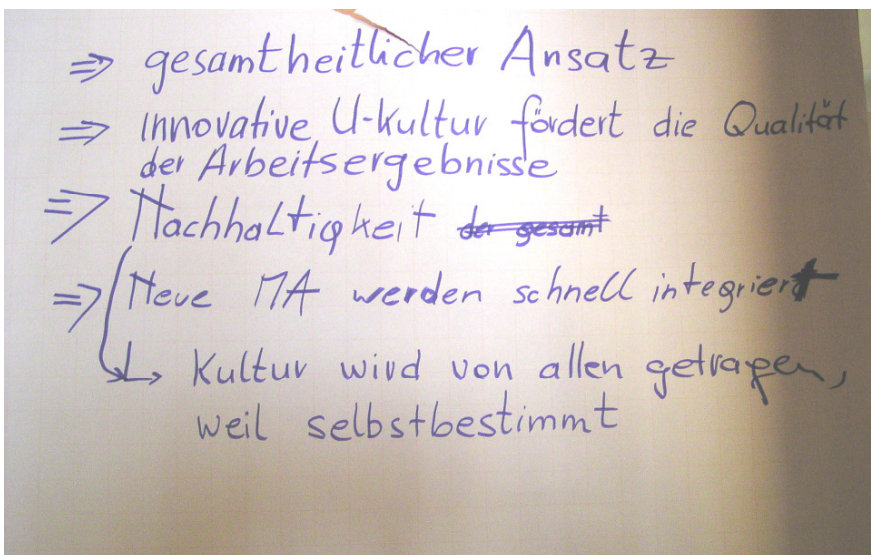 ⇒ gesamtheitlicher Ansatz
⇒ innovative U-Kultur fördert die Qualität
der Arbeitsergebnisse
⇒ Nachhaltigkeit ~~der gesamt~~
⇒ Neue MA werden schnell integriert
↳ Kultur wird von allen getragen,
weil selbstbestimmt